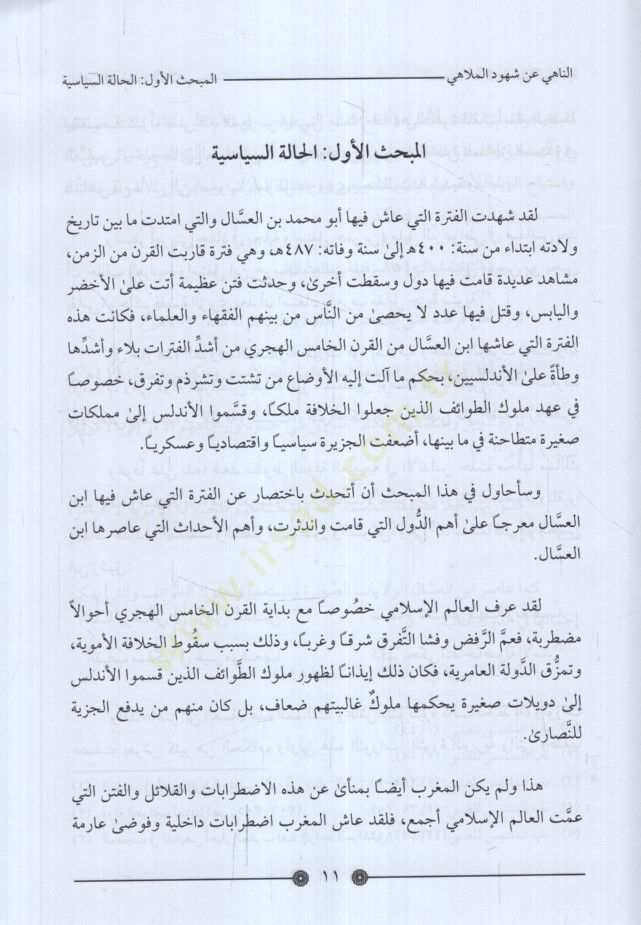 الناهي عن شهود الملاهي
المبحث الأول: الحالة السياسية
المبحث الأول: الحالة السياسية
لقد شهدت الفترة التي عاش فيها أبو محمد بن العسَّال والتي امتدت ما بين تاريخ
ولادته ابتداء من سنة: ٤٠٠هـ إلىٰ سنة وفاته: ٤٨٧هـ، وهي فترة قاربت القرن من الزمن،
مشاهد عديدة قامت فيها دول وسقطت أخرىٰ، وحدثت فتن عظيمة أتت علىٰ الأخضر
واليابس، وقتل فيها عدد لا يحصىٰ من النَّاس من بينهم الفقهاء والعلماء، فكانت هذه
الفترة التي عاشها ابن العسَّال من القرن الخامس الهجري من أشدِّ الفترات بلاء وأشدِّها
وطأةً علىٰ الأندلسيين، بحكم ما آلت إليه الأوضاع من تشتت وتشرذم وتفرق، خصوصًا
في عهد ملوك الطوائف الذين جعلوا الخلافة ملكًا، وقسَّموا الأندلس إلىٰ مملكات
صغيرة متطاحنة في ما بينها، أضعفت الجزيرة سياسيًا واقتصاديًا وعسكريًا.
وسأحاول في هذا المبحث أن أتحدث باختصار عن الفترة التي عاش فيها ابن
العسَّال معرجًا علىٰ أهم الدُّول التي قامت واندثرت، وأهم الأحداث التي عاصرها ابن
العسَّال.
لقد عرف العالم الإسلامي خصُوصًا مع بداية القرن الخامس الهجري أحوالاً
مضطربة، فعمَّ الرَّفض وفشا التَّفرق شرقًا وغربًا، وذلك بسبب سقُوط الخلافة الأموية،
وتمزُّق الدَّولة العامرية، فكان ذلك إيذانًا لظهور ملوك الطَّوائف الذين قسموا الأندلس
إلىٰ دويلات صغيرة يحكمها ملوكٌ غالبيتهم ضعاف، بل كان منهم من يدفع الجزية
للنَّصارىٰ.
هذا ولم يكن المغرب أيضًا بمنأىٰ عن هذه الاضطرابات والقلائل والفتن التي
عمَّت العالم الإسلامي أجمع، فلقد عاش المغرب اضطرابات داخلية وفوضىٰ عارمة
١١
www.irsad.com.tr